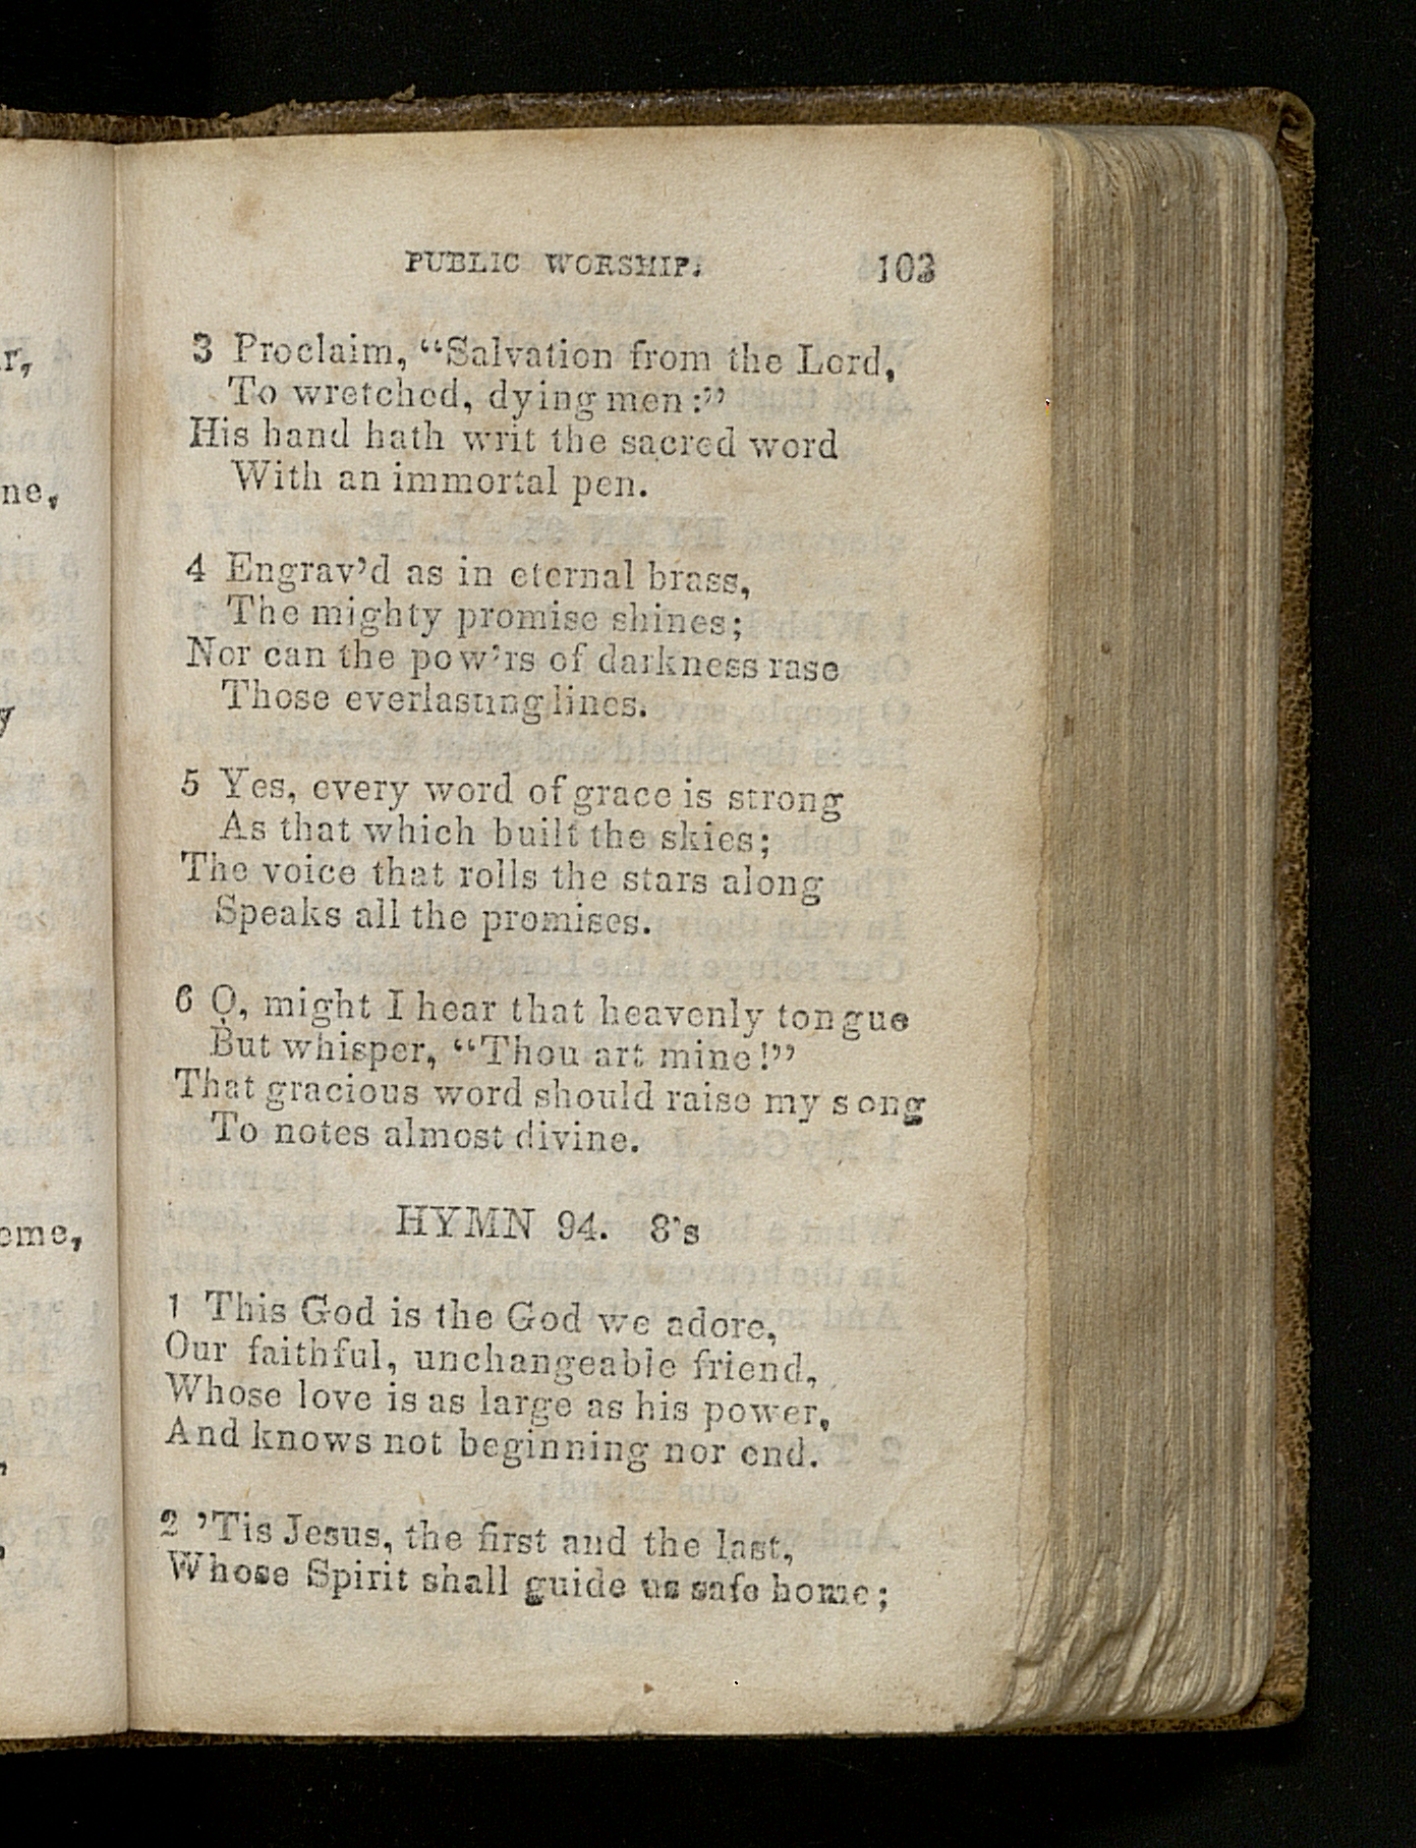 r,
ne,
y
eme,
,
,
PUBLIC WORSHIP. 103
3 Proclaim, “Salvation from the Lord,
To wretched, dying men:”
His hand hath writ the sacred word
With an immortal pen.
4 Engrav’d as in eternal brass,
The mighty promise shines;
Nor can the pow’rs of darkness rase
Those everlasting lines.
5 Yes, every word of grace is strong
As that which built the skies;
The voice that rolls the stars along
Speaks all the promises.
6 O, might I hear that heavenly tongue
But whisper, “Thou art mine!”
That gracious word should raise my song
To notes almost divine.
HYMN 94. 8’s
1 This God is the God we adore,
Our faithful, unchangeable friend,
Whose love is as large as his power,
And knows not beginning nor end.
2 ’Tis Jesus, the first and the last,
Whose Spirit shall guide us safe home;